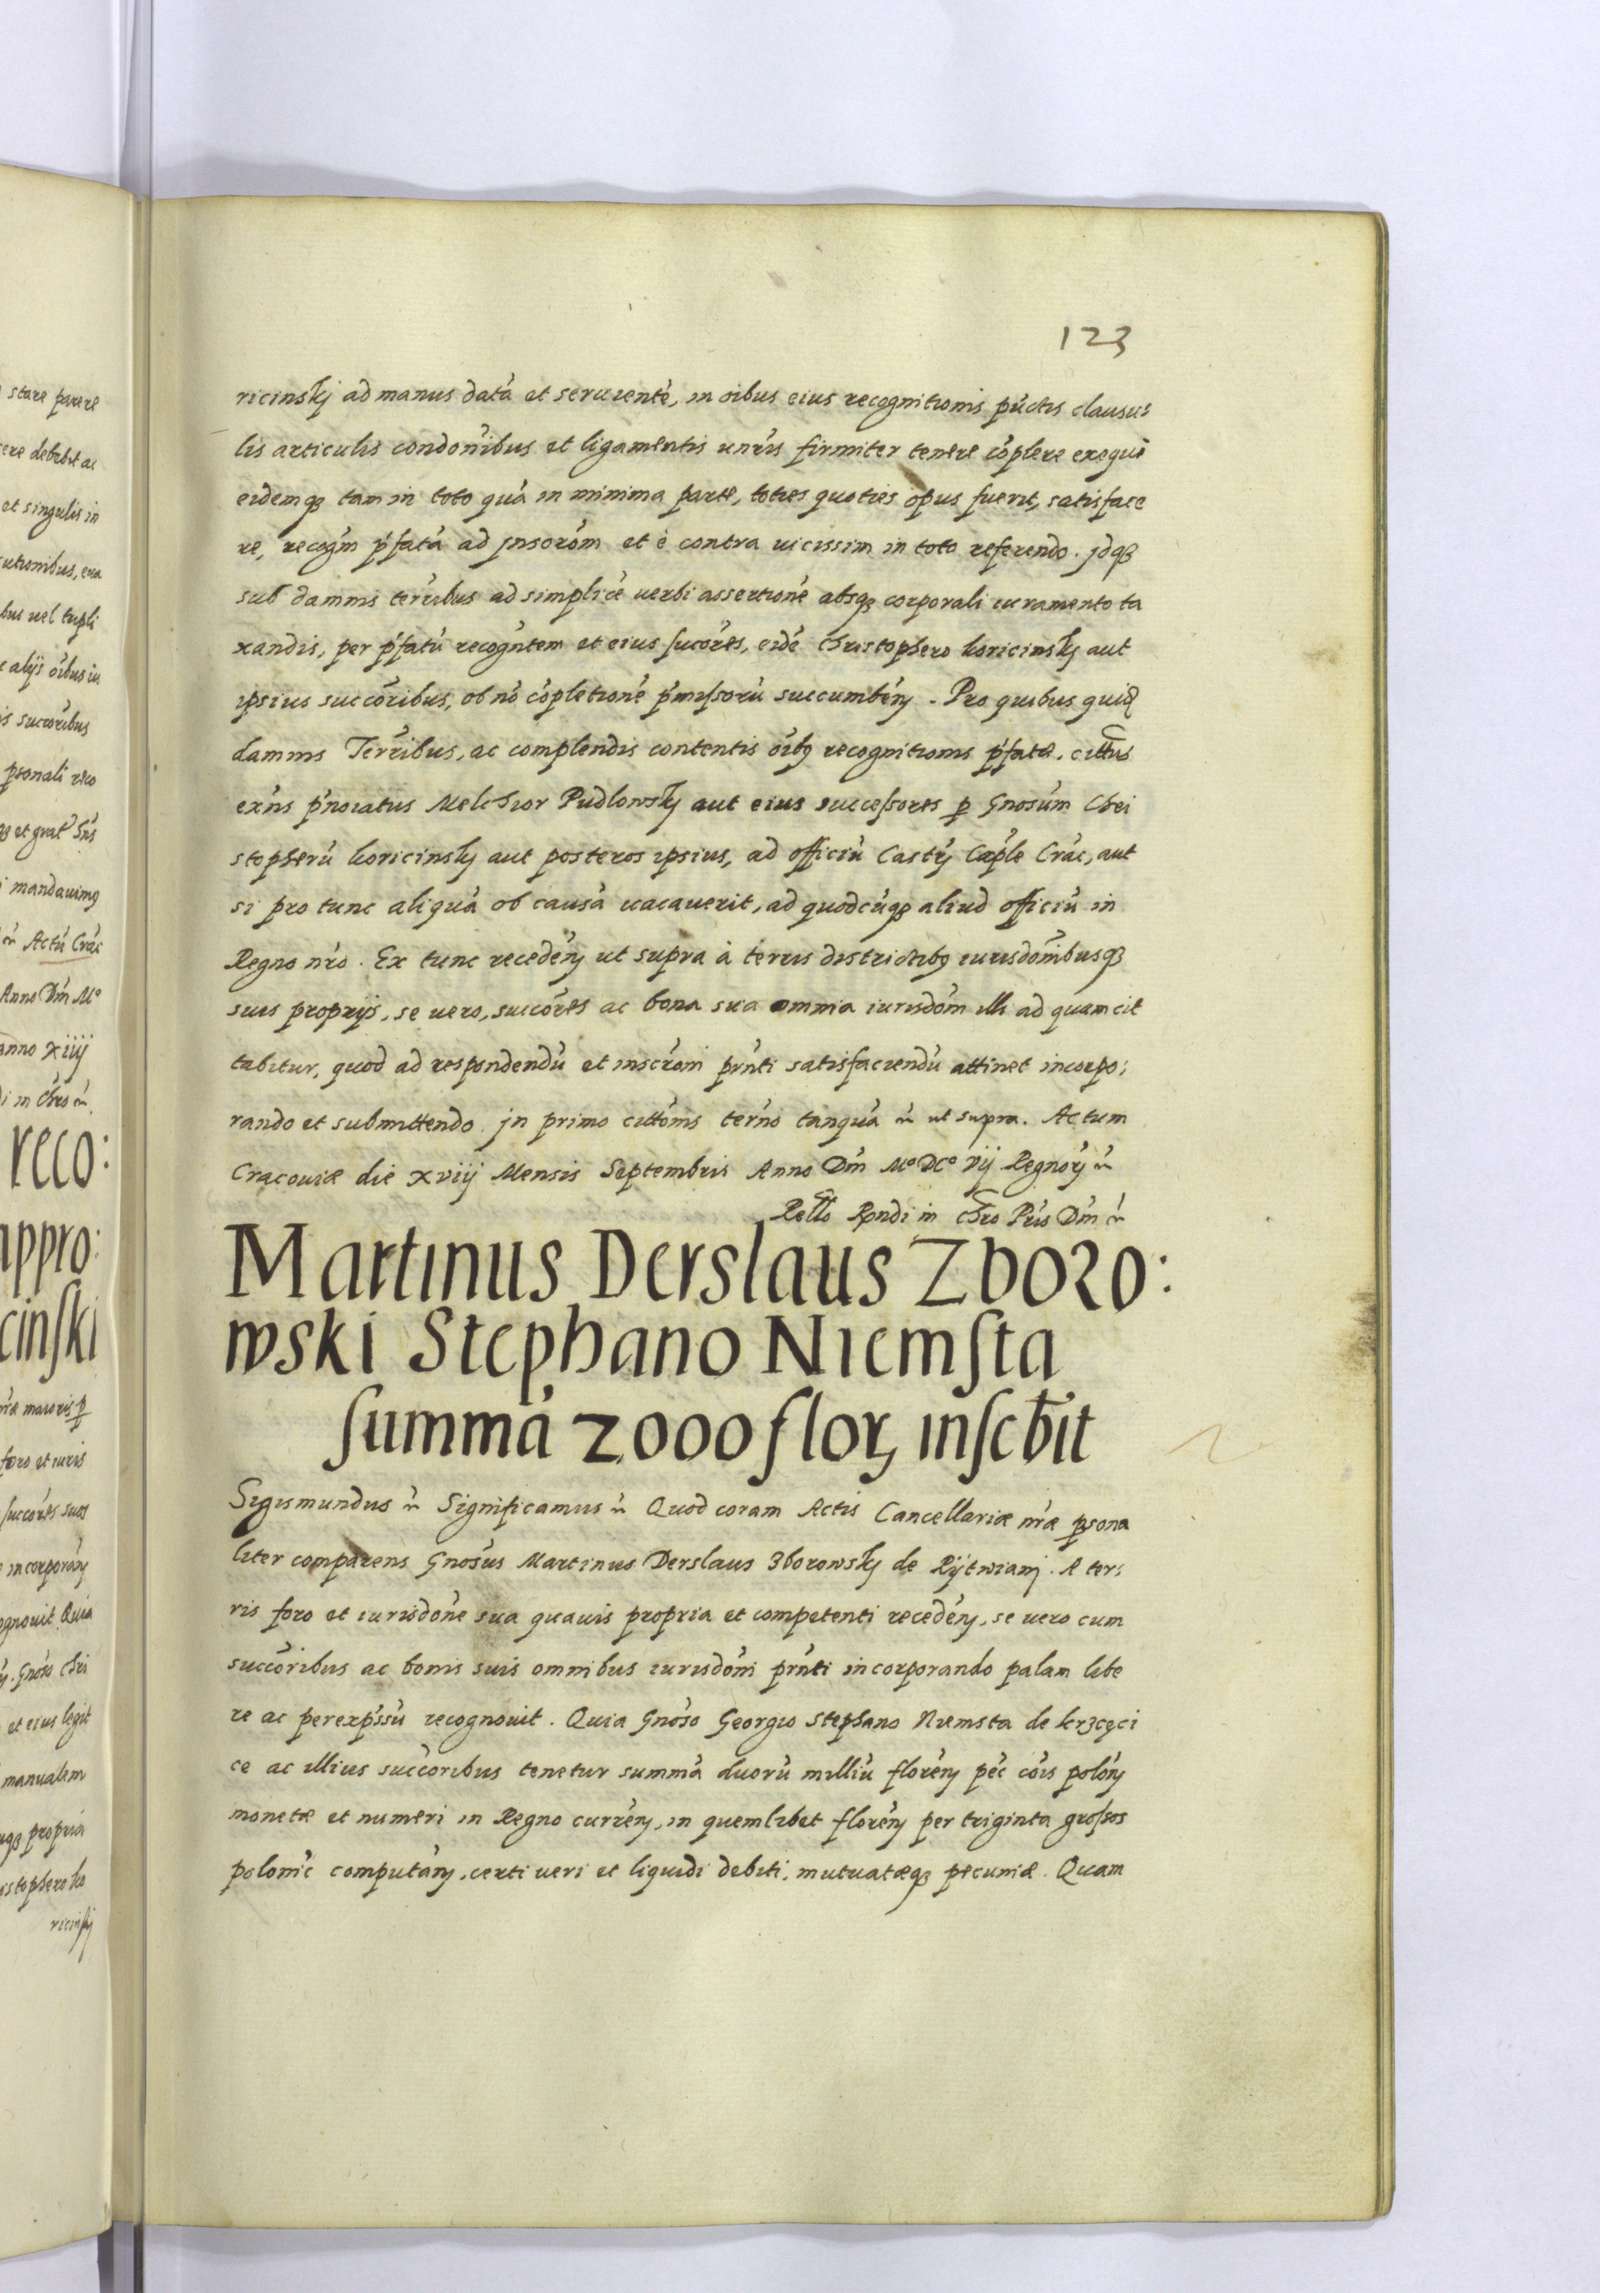 123
ricinskÿ ad manus datá et seruientè, in oibus eius recognitionis púctis clausu:
lis articulis condoníbus et ligamentis vnı̃vs firmiter tenere cóplere exequi
eidemqȝ tam in toto quá in minima parte, toties quoties opus fuerit, satisface
re, recogm̃ p̃fatá ad jnsoróm et è contra uicissim in toto referendo. jdqȝ
sub damnis terrı̃bus ad simplicé uerbi assertioné absqȝ corporali iuramento ta
xandis, per p̃fatú recogńtem et eius sucóres, eidé Christophero koricinskÿ aut
ipsius succóribus, ob nó cópletioné p̃missorú succumbéń. Pro quibus quidȩ
damnis Terrı̃bus, ac complendis contentis óibȝ recognitionis p̃fatæ. cittús
exńs p̃noiatus Melchior Pudlowskÿ aut eius successores p Gnosúm Chri
stopherú koricinskÿ aut posteros ipsius, ad officiú Castŕ Cápłe Crác, aut
si pro tunc aliquá ob causá uacauerit, ad quodcúqȝ aliud officiú in
Regno nŕo. Ex tunc recedéń ut supra à terris districtibȝ iurisdońibusqȝ
suis proprijs, se uero, succóres ac bona sua omnia iurisdóm illi ad quam cit
tabitur, quod ad respondendú et inscróni pŕnti satisfaciendú attinet incorpo:
rando et submittendo. jn primo cittońis terńo tanquá ut supra. Actum
Cracouiæ die xviij Mensis Septembris Anno Dńi Mº DCº vij Regnoŕ
Rełło Rǹdi in Chŕo Pŕis Dńi
Martinus Derslaus Zboro:
wski Stephano Niemsta
summá 2000 floŕ inscb̃it
Sigismundus Significamus Quod coram Actis Cancellariæ nŕæ psona
liter comparens Gnosús Martinus Derslaus Zborowskÿ de Rÿtwianj. A ter:
ris foro et iurisdońe sua quauis propria et competenti recedéń, se uero cum
succóribus ac bonis suis omnibus iurisdońi pŕnti incorporando palam libe
re ac perexp̃ssú recognouit. Quia Gnóso Georgio Stephano Niemsta de krzcȩci
ce ac illius succóribus tenetur summá duorú milliú floréń péc cóis polóń
monetæ et numeri in Regno curréń, in quemlibet floréń per triginta grossos
polonić computáń, certi ueri et liquidi debiti, mutuatæqȝ pecuniæ. Quam